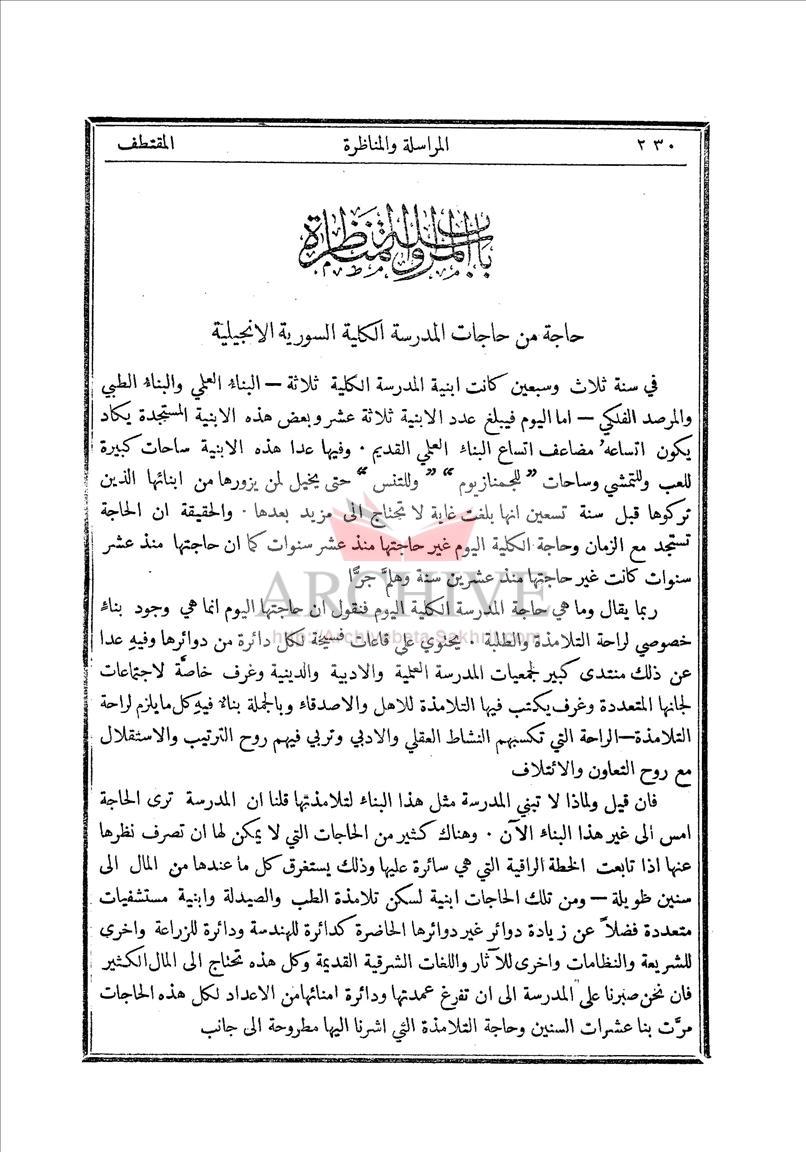 ٢٣٠ المراسلة والمناظرة المقتطف
باب المراسلة والمناظرة
حاجة من حاجات المدرسة الكلية السورية الانجيلية
في سنة ثلاث وسبعين كانت ابنية المدرسة الكلية ثلاثة – البناء العلمي والبناء الطبي
والمرصد الفلكي – اما اليوم فيبلغ عدد الابنية ثلاثة عشر وبعض هذه الابنية المستجدة يكاد
يكون اتساعهُ مضاعف اتساع البناء العلمي القديم ٠ وفيها عدا هذه الابنية ساحات كبيرة
للعب وللتمشي وساحات ”للجمنازيوم“ ”وللتنس“ حتى يخيل لمن يزورها من ابنائها الذين
تركوها قبل سنة تسعين انها بلغت غاية لا تحتاج الى مزيد بعدها ٠ والحقيقة ان الحاجة
تستجد مع الزمان وحاجة الكلية اليوم غير حاجتها منذ عشر سنوات كما ان حاجتها منذ عشر
سنوات كانت غير حاجتها منذ عشرين سنة وهلمَّ جرًّا
ARCHIVE
ربما يقال وما هي حاجة المدرسة الكلية اليوم فنقول ان حاجتها اليوم انما هي وجود بناء
http://Archivebeta.Sakhrit.com
خصوصي لراحة التلامذة والطلبة ٠ يحتوي على قاعات فسيحة لكل دائرة من دوائرها وفيه عدا
عن ذلك منتدى كبير لجمعيات المدرسة العلمية والادبية والدينية وغرف خاصَّة لاجتماعات
لجانها المتعددة وغرف يكتب فيها التلامذة للاهل والاصدقاء وبالجملة بناء فيه كل ما يلزم لراحة
التلامذة–الراحة التي تكسبهم النشاط العقلي والادبي وتربي فيهم روح الترتيب والاستقلال
مع روح التعاون والائتلاف
فان قيل ولماذا لا تبني المدرسة مثل هذا البناء لتلامذتها قلنا ان المدرسة ترى الحاجة
امس الى غير هذا البناء الآن ٠ وهناك كثير من الحاجات التي لا يمكن لها ان تصرف نظرها
عنها اذا تابعت الخطة الراقية التي هي سائرة عليها وذلك يستغرق كل ما عندها من المال الى
سنين طويلة – ومن تلك الحاجات ابنية لسكن تلامذة الطب والصيدلة وابنية مستشفيات
متعددة فضلاً عن زيادة دوائر غير دوائرها الحاضرة كدائرة للهندسة ودائرة للزراعة واخرى
للشريعة والنظامات واخرى للآثار واللغات الشرقية القديمة وكل هذه تحتاج الى المال الكثير
فان نحن صبرنا على المدرسة الى ان تفرغ عمدتها ودائرة امنائها من الاعداد لكل هذه الحاجات
مرَّت بنا عشرات السنين وحاجة التلامذة التي اشرنا اليها مطروحة الى جانب